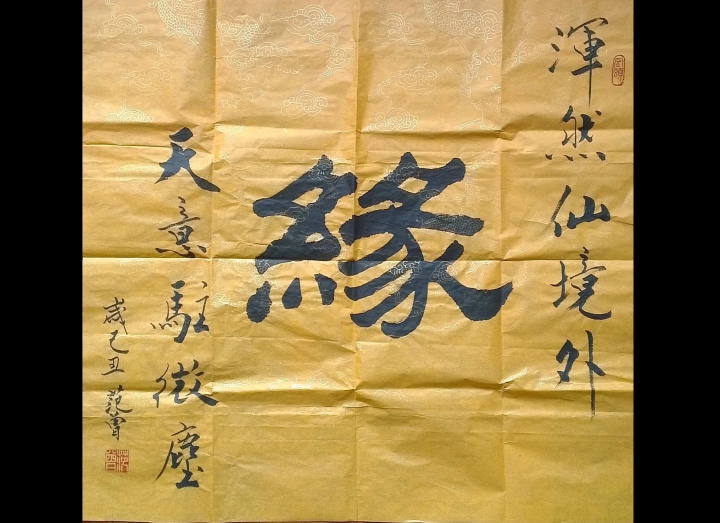 渾然仙境外
緣
天意駐微塵
歲己丑 范曾